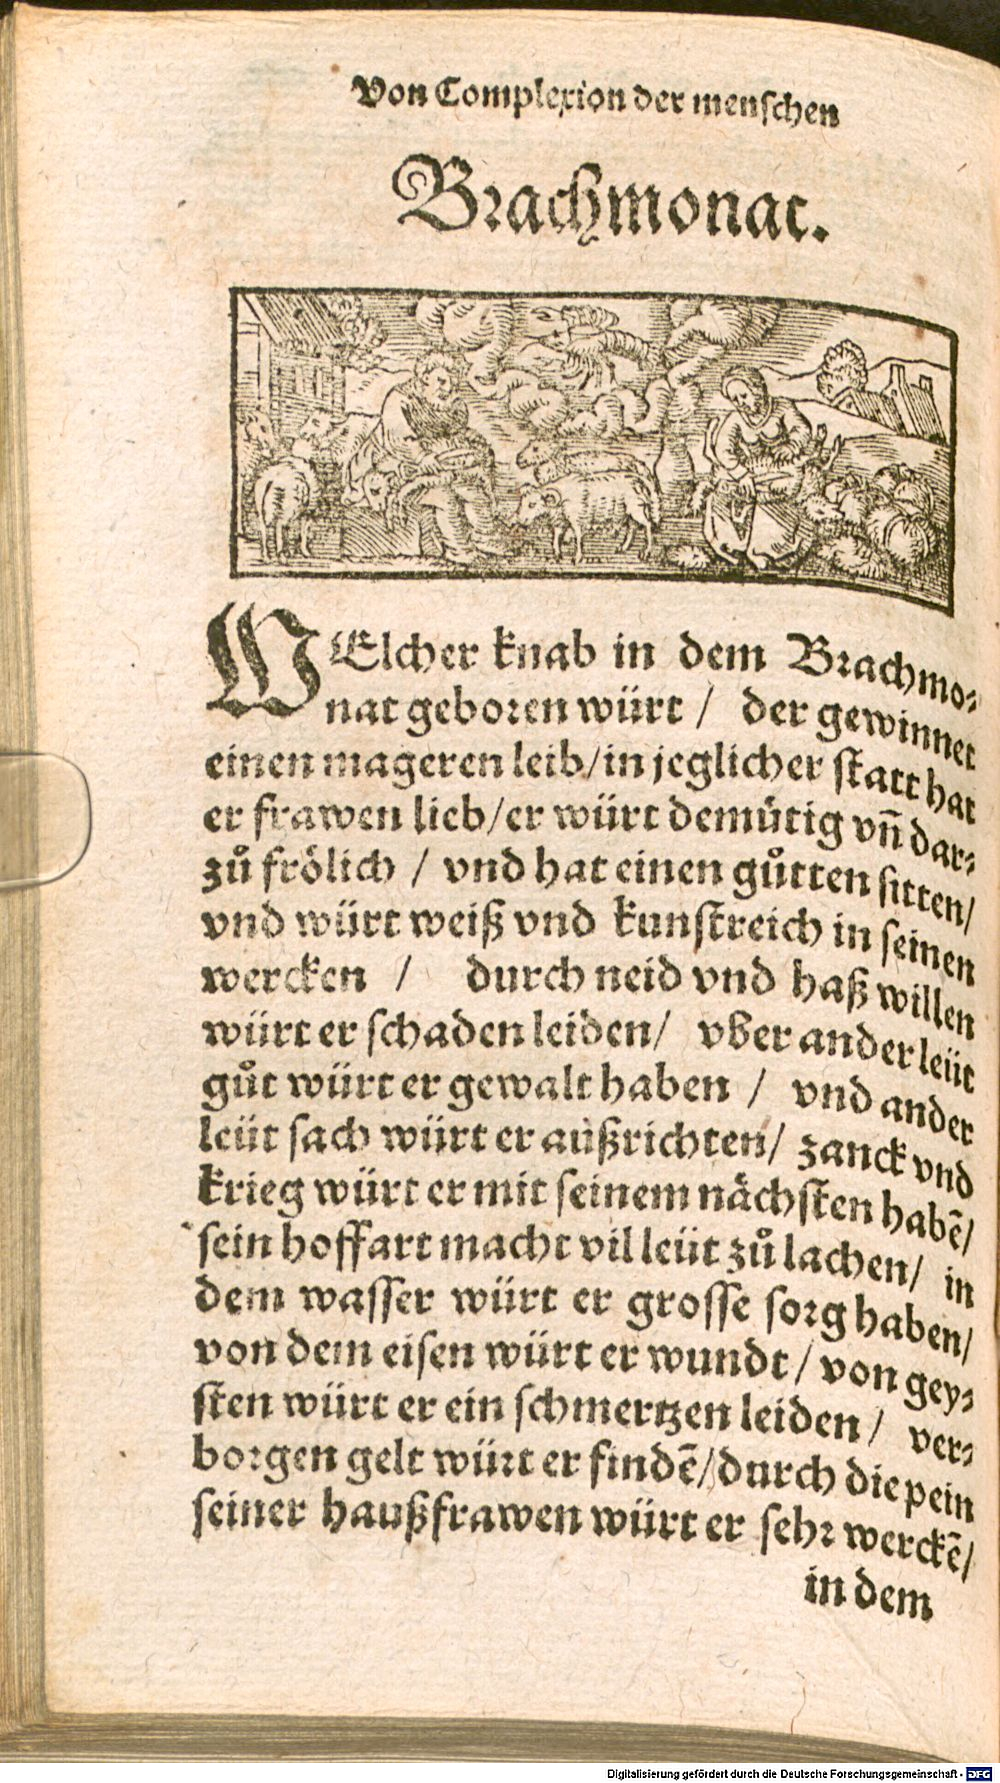 Von Complexion der menschen
Brachmonat.
WElcher knab in dem Brachmo⸗
nat geboren würt / der gewinnet
einen mageren leib/in jeglicher statt hat
er frawen lieb/er würt demütig vñ dar⸗
zů frölich / vnd hat einen gůtten sitten/
vnd würt weiß vnd kunstreich in seinen
wercken / durch neid vnd haß willen
würt er schaden leiden/ vber ander leüt
gůt würt er gewalt haben / vnd ander
leüt sach würt er außrichten/ zanck vnd
krieg würt er mit seinem nächsten habē/
sein hoffart macht vil leüt zů lachen/ in
dem wasser würt er grosse sorg haben/
von dem eisen würt er wundt/ von gey⸗
sten würt er ein schmertzen leiden/ ver⸗
borgen gelt würt er findē/durch die pein
seiner haußfrawen würt er sehr werckē/
in dem
Digitalisierung gefördert durch die Deutsche Forschungsgemeinschaft - DFG